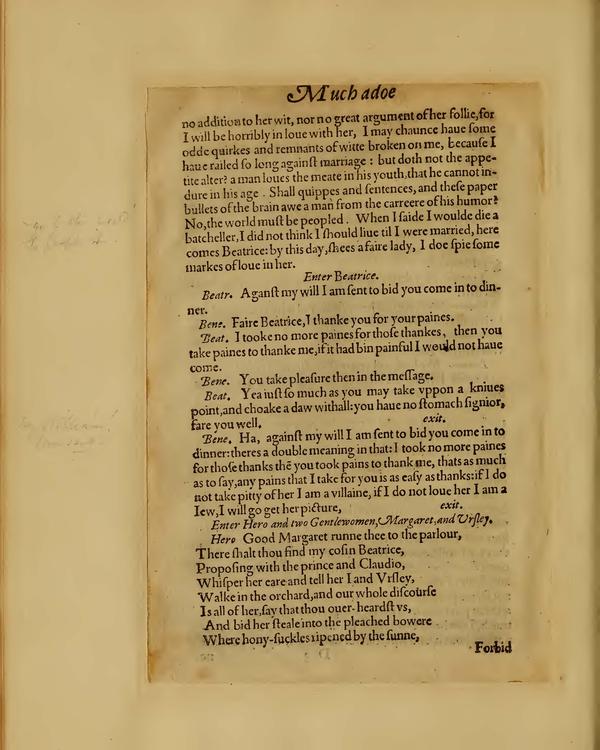 Much adoe
no addition to her wit, nor no great argument of her follie, for
I will be horribly in loue with her, I may chaunce haue ſome
odde quirkes and remnants of witte broken on me, becauſe I
haue railed ſo long againſt marriage : but doth not the appe-
tite alter? a man loues the meate in his youth, that he cannot in-
dure in his age . Shall quippes and ſentences, and theſe paper
bullets of the brain awe a man from the carreere of his humor?
No, the world muſt be peopled . When I ſaide I woulde die a
batcheller, I did not think I ſhould liue til I were married, here
comes Beatrice: by this day, ſhees a faire lady, I doe ſpie ſome
markes of loue in her.
Enter Beatrice.
Beatr. Aganſt my will I am ſent to bid you come in to din-
ner.
Bene. Faire Beatrice, I thanke you for your paines.
Beat. I tooke no more paines for thoſe thankes, then you
take paines to thanke me, if it had bin painful I would not haue
come.
Bene. You take pleaſure then in the meſſage.
Beat. Yea iuſt ſo much as you may take vppon a kniues
point, and choake a daw withall: you haue no ſtomach ſignior,
fare you well. exit.
Bene. Ha, againſt my will I am ſent to bid you come in to
dinner: theres a double meaning in that: I took no more paines
for thoſe thanks thē you took pains to thank me, thats as much
as to ſay, any pains that I take for you is as eaſy as thanks: if I do
not take pitty of her I am a villaine, if I do not loue her I am a
Iew, I will go get her picture, exit.
Enter Hero and two Gentlewomen, Margaret, and Vrſley.
Hero Good Margaret runne thee to the parlour,
There ſhalt thou find my coſin Beatrice,
Propoſing with the prince and Claudio,
Whiſper her eare and tell her I and Vrſley,
Walke in the orchard, and our whole diſcourſe
Is all of her, ſay that thou ouer-heardſt vs,
And bid her ſteale into the pleached bowere
Where hony-ſuckles ripened by the ſunne,
Forbid